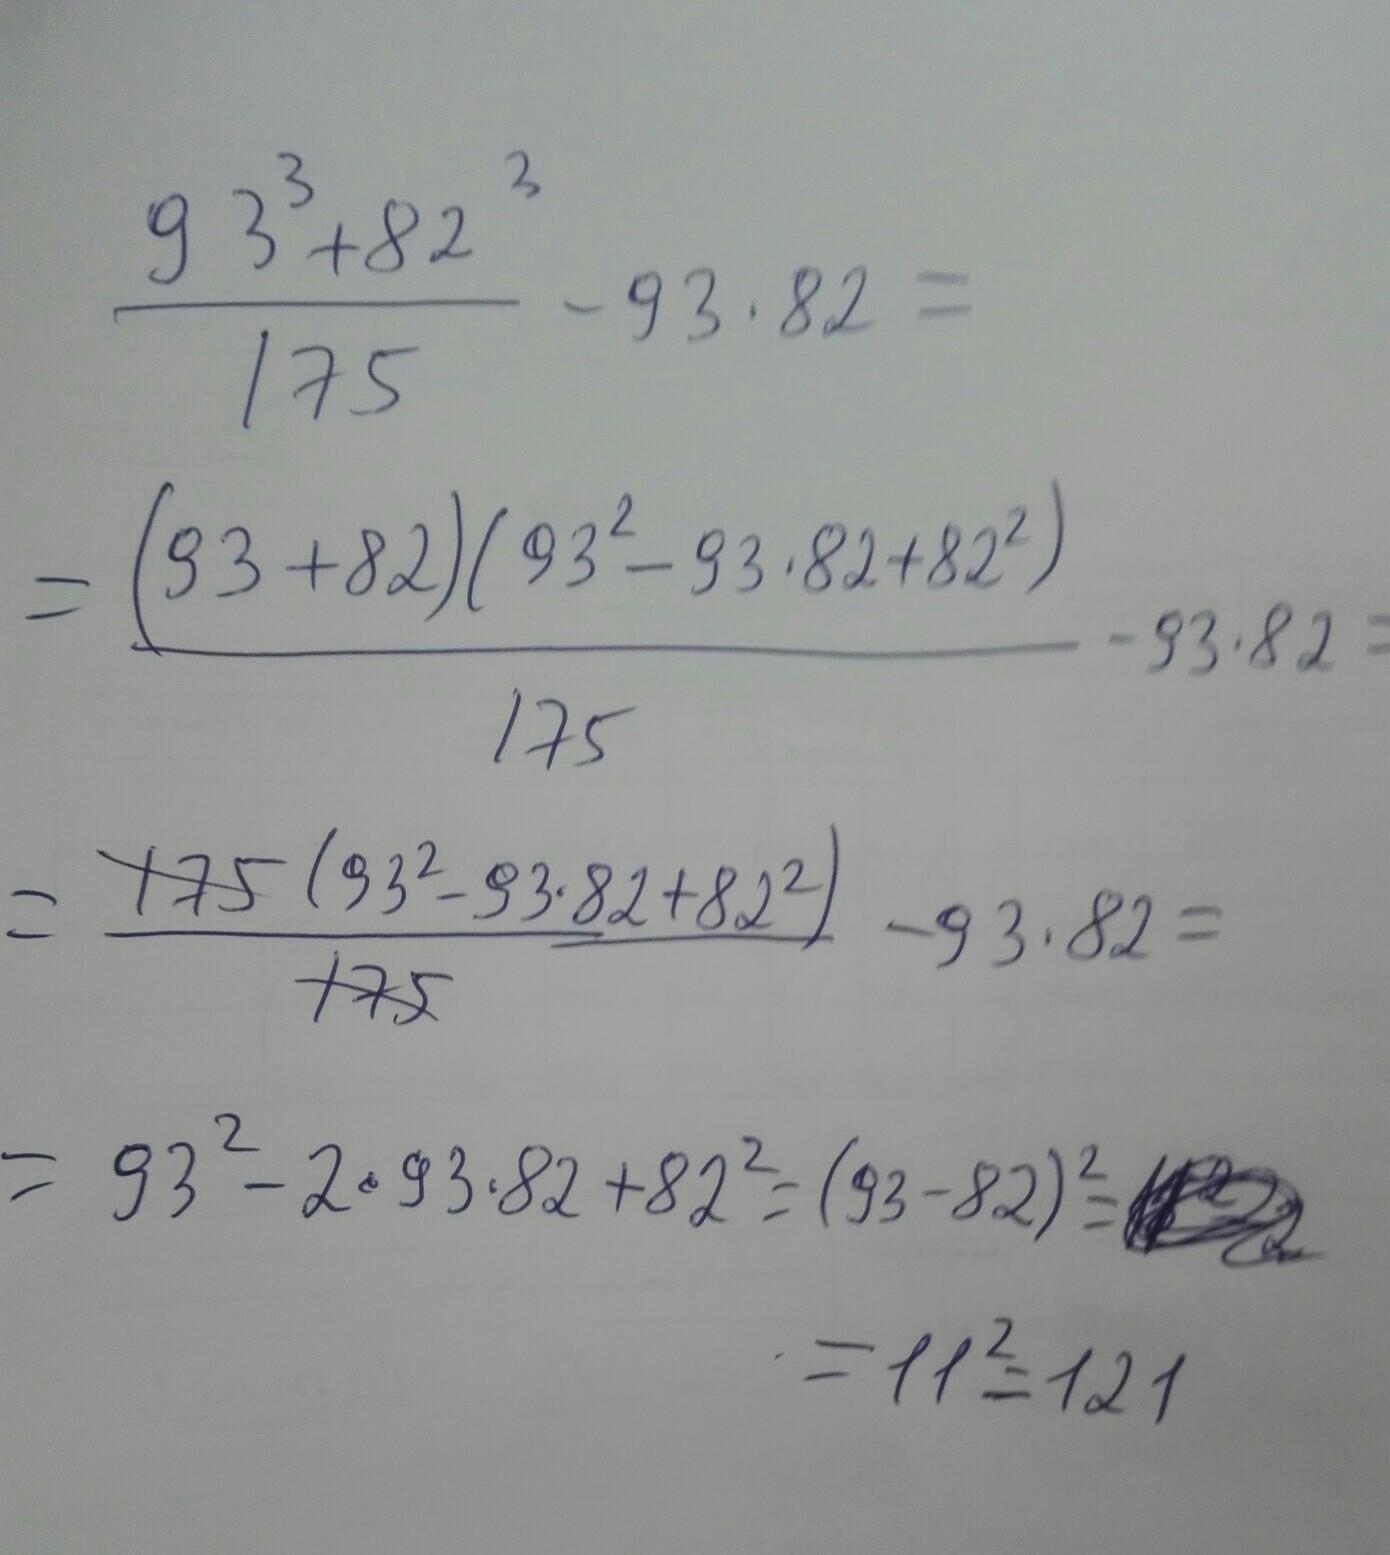 93³+82³
175
-93·82=
=(93+82)(93²-93·82+82²)
175
-93·82=
=175(93²-93·82+82²)
175
-93·82=
=93²-2·93·82+82²=(93-82)²=
=11²=121